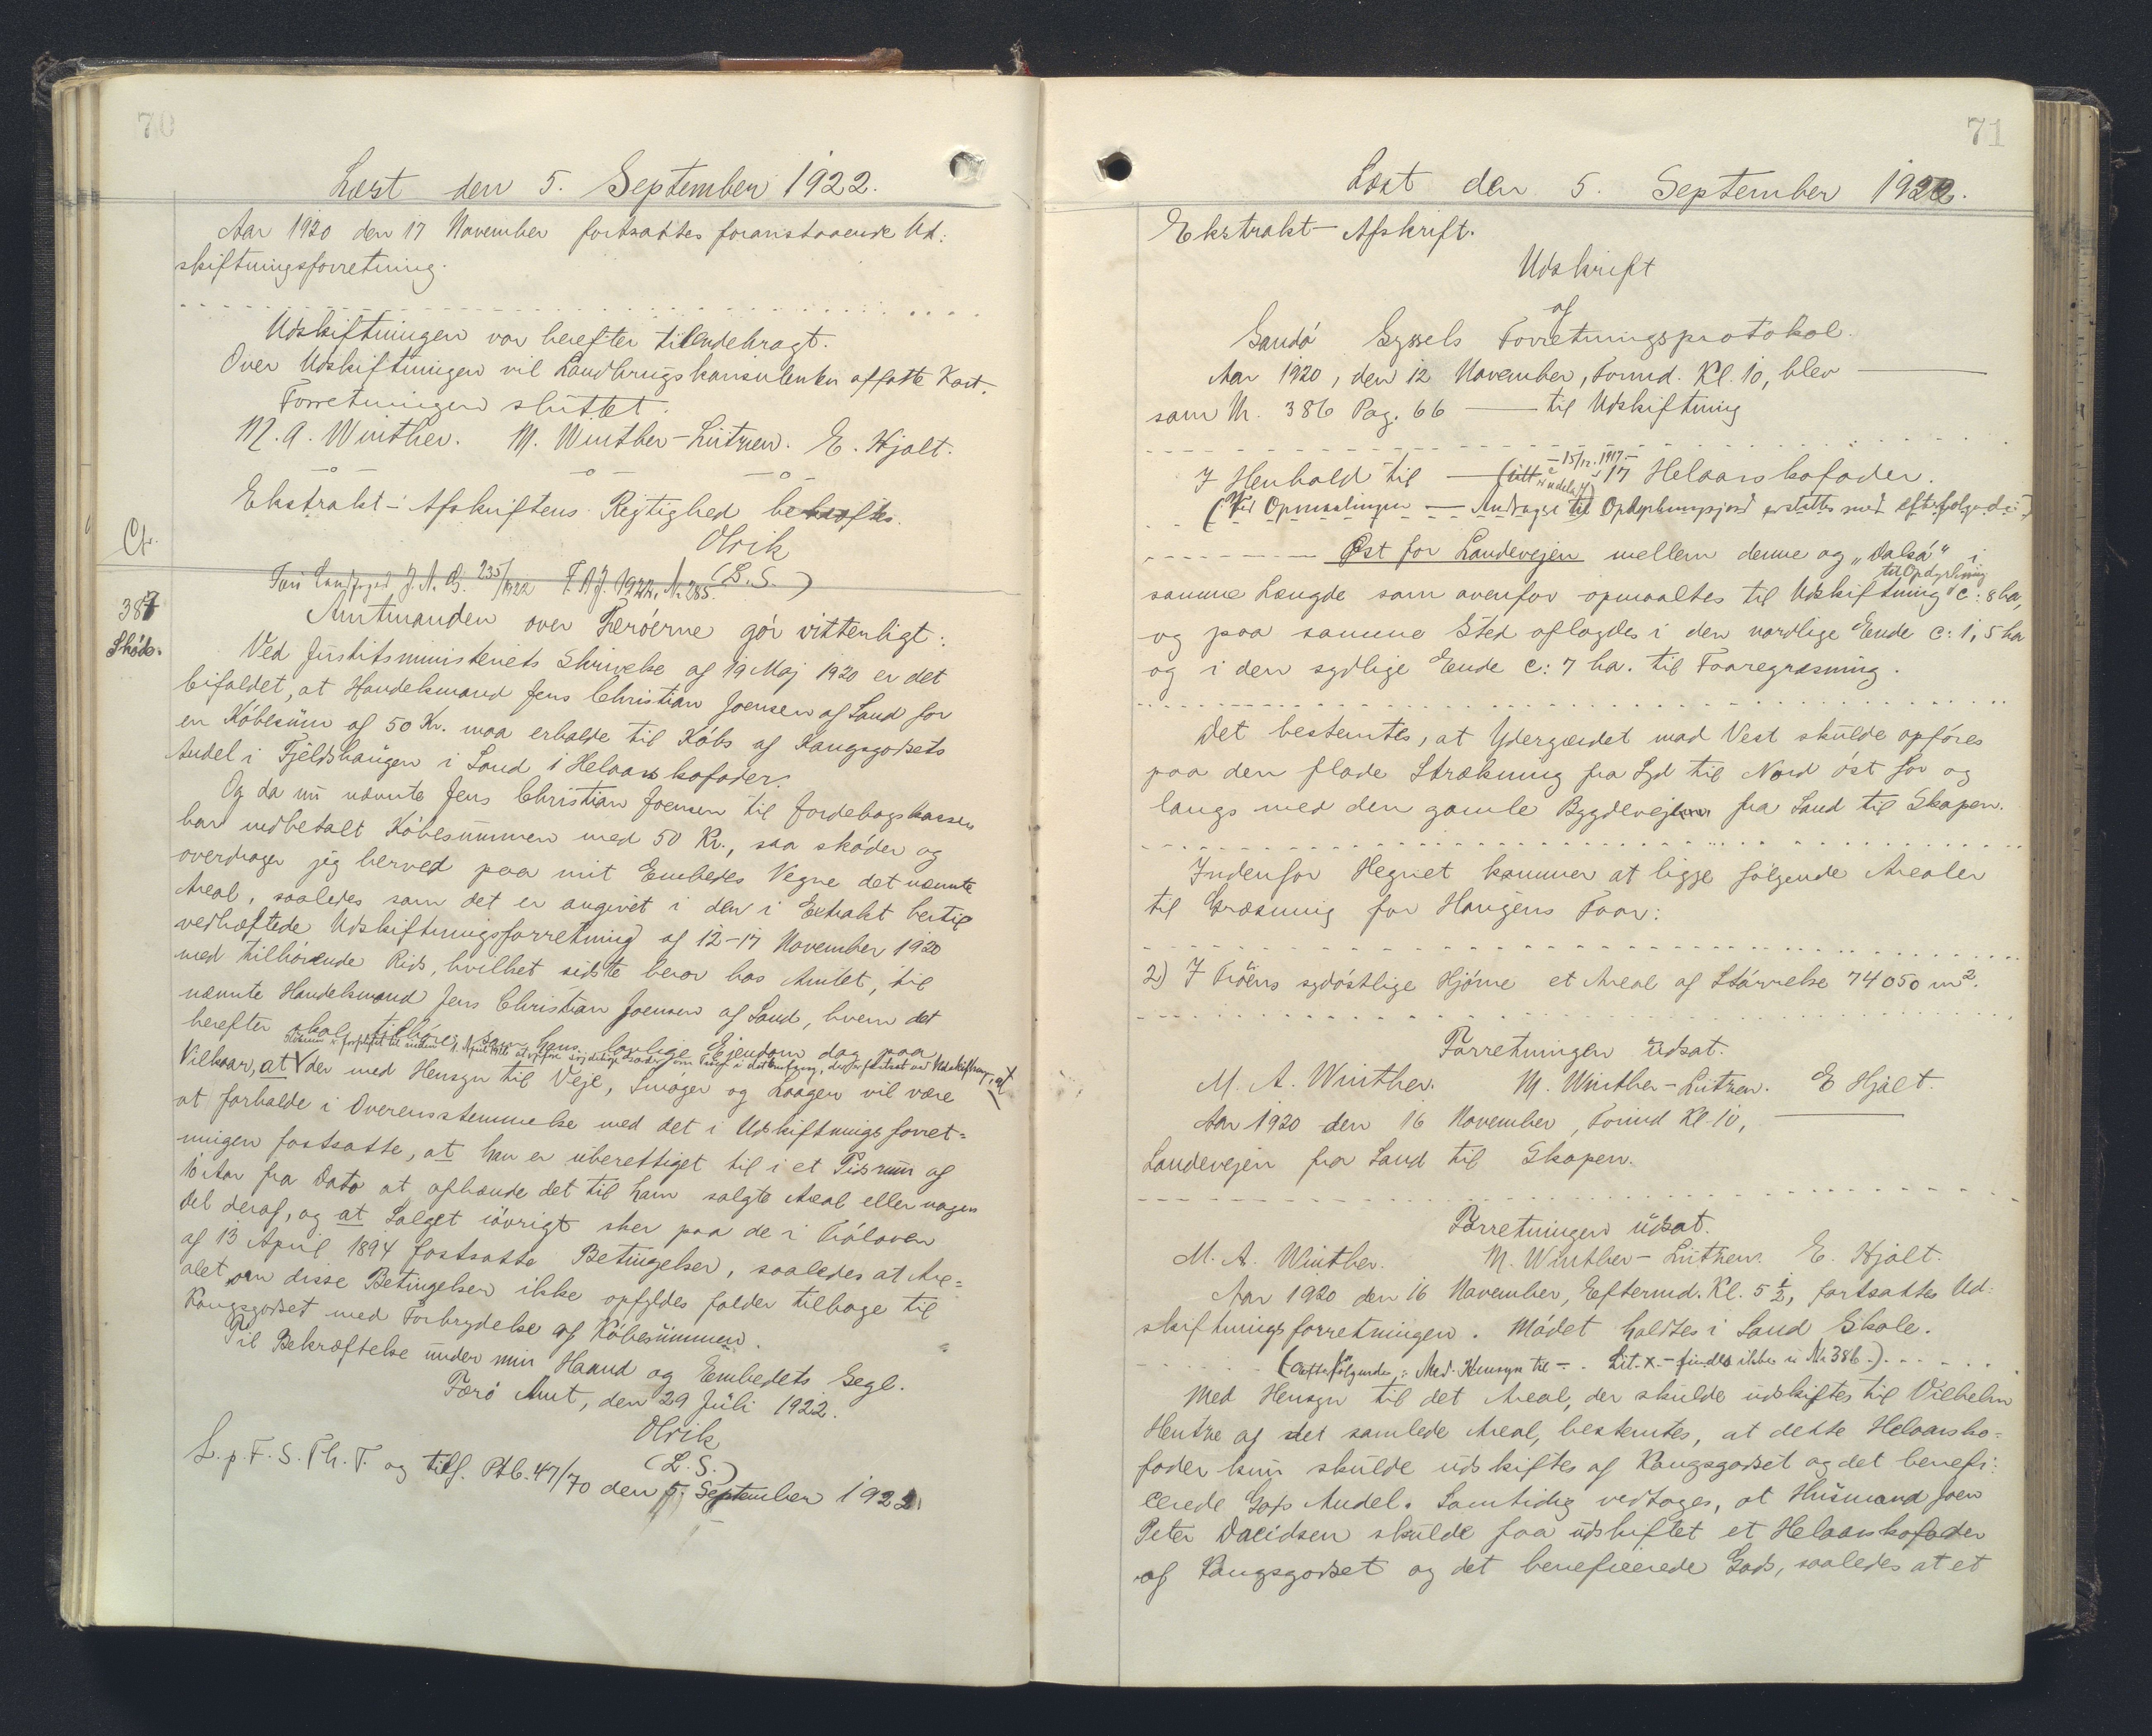 70
Læst den 5. September 1922.
Aar 1920 den 17 November fortsattes foranstaaende Ud:
skiftningsforretning.
Udskiftningen var herefter tilendebragt.
Over Udskiftningen vil Landbrugskonsulenten affatte Kort.
Forretningen sluttet.
M. A. Winther. M. Winther-Lützen. E. Hjalt.
Ekstrakt-Afskriftens Rigtighed bekræftes.
Olrik
(L.S.)
Cfr.
J. A. B. 235/1922 F.A.J. 1922, N. 285.
387
Skøde.
Amtmanden over Færöerne gör vitterligt:
Ved Justitsministeriets Skrivelse af 19 Maj 1920 er det
bifaldet, at Handelsmand Jens Christian Joensen af Sand for
en Köbesum af 50 Kr. maa erholde til Köbs af Kongsgodsets
Andel i Fjeldshaugen i Sand 1 Helaarskofoder.
Og da nu nævnte Jens Christian Joensen til Jordebogskassen
har indbetalt Köbesummen med 50 Kr., saa sköder og
overdrager jeg herved paa mit Embedes Vegne det nævnte
Areal, saaledes som det er angivet i den i Extrakt hertil
vedhæftede Udskiftningsforretning af 12-17 November 1920
med tilhörende Rids, hvilket sidste beror hos Amtet, til
nævnte Handelsmand Jens Christian Joensen af Sand, hvem det
herefter skal tilhöre som hans lovlige Ejendom dog paa
Vilkaar, at der med Hensyn til Veje, Smöger og Laager vil være
at forholde i Overensstemmelse med det i Udskiftningsforret=
ningen fastsatte, at han er uberettiget til i et Tidsrum af
10 Aar fra Dato at afhænde det til ham solgte Areal eller nogen
Del deraf, og at Salget iövrigt sker paa de i Tröloven
af 13 April 1894 fastsatte Betingelser, saaledes at Are=
alet, om disse Betingelser ikke opfyldes falder tilbage til
Kongsgodset med Forbrydelse af Köbesummen.
Til Bekræftelse under min Haand og Embedets Segl.
Færö Amt, den 29 Juli 1922.
Olrik
(L.S.)
L. p. F. S. Th. T. og tilf. Ptb. 47/70 den 5. September 1922
71
Læst den 5. September 1922.
Ekstrakt-Afskrift.
Udskrift
af
Sandö Syssels Forretningsprotokol.
Aar 1920, den 12 November, Formd. Kl. 10, blev
som Nr. 386 Pag. 66 — til Udskiftning
-15/12.1917.-
I Henhold til — 17 Helaarskofoder.
(Ved Opmaalingen — Andrager til Opdyrkningsjord erstattes med efterfølgende:)
Øst for Landevejen mellem denne og „Dalså" i
til Opdyrkning
samme Længde som ovenfor opmaaltes til Udskiftning c: 8 ha,
og paa samme Sted aflagdes i den nordlige Ende c: 1,5 ha
og i den sydlige Ende c: 7 ha. til Faaregræsning.
Det bestemtes, at Ydergærdet mod Vest skulde opföres
paa den flade Strækning fra Syd til Nord öst for og
langs med den gamle Bygdevejen fra Sand til Skopen.
Indenfor Hegnet kommer at ligge fölgende Arealer
til Græsning for Haugens Faar:
2) I Tröens sydöstlige Hjörne et Areal af Störrelse 74050 m².
Forretningen udsat.
M. A. Winther. M. Winther-Lützen. E Hjalt.
Aar 1920 den 16 November, Formd Kl. 10,
Landevejen fra Sand til Skopen.
Forretningen udsat.
M. A. Winther. M. Winther-Lützen. E. Hjalt.
Aar 1920 den 16 November, Eftermd. Kl. 5 1/2, fortsattes Ud:
skiftningsforretningen. Mödet holdtes i Sand Skole.
(Efterfølgende: Med Hensyn til - . Lit. x. - findes ikke i Nr. 386.)
Med Hensyn til det Areal, der skulde udskiftes til Vilhelm
Hentze af det samlede Areal, bestemtes, at dette Helaarsko=
foder kun skulde udskiftes af Kongsgodset og det benefi:
cerede Gods Andel. Samtidig vedtoges, at Husmand Joen
Peter Davidsen skulde faa udskiftet et Helaarskofoder
af Kongsgodset og det beneficerede Gods, saaledes at et